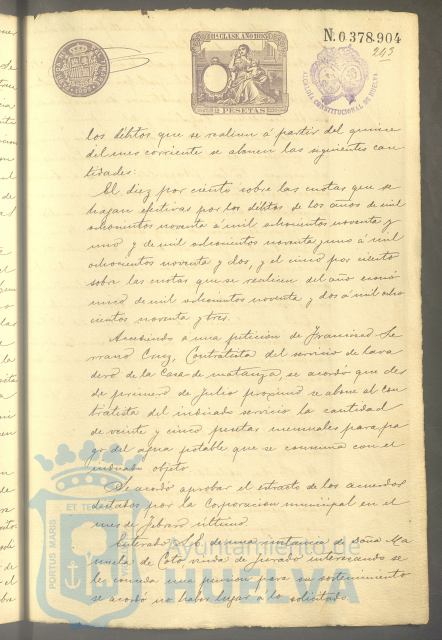 11ª CLASE AÑO 1893
N. 0.378.904
243
PESETAS
ALCALDIA CONSTITUCIONAL DE HUELVA
los débitos que se realicen á partir del quince
del mes corriente se abonen las siguientes can
tidades:
El diez por ciento sobre las cuotas que se
hagan efectivas por los débitos de los años de mil
ochocientos noventa á mil ochocientos noventa y
uno y de mil ochocientos noventa y uno á mil
ochocientos noventa y dos, y el cinco por ciento
sobre las cuotas que se realicen del año econó
mico de mil ochocientos noventa y dos á mil ocho
cientos noventa y tres.
Accediendo a una petición de Francisco Se
rrano Cruz, Contratista del servicio de lava
dero de la Casa de matanza, se acordó que des
de primero de Julio proximo se abone al con
tratista del indicado servicio la cantidad
de veinte y cinco pesetas mensuales para pa
go del agua potable que se consuma con el
indicado objeto.
Se acordó aprobar el extracto de los acuerdos
dictados por la Corporacion municipal en el
mes de Febrero último.
Enterado S.E. de una instancia de doña Ma
nuela de Coto viuda de Jurado interesando se
le conceda una pension para su sostenimiento
se acordó no haber lugar a lo solicitado.
PORTUS MARIS ET TERRÆ
Ayuntamiento de
HUELVA